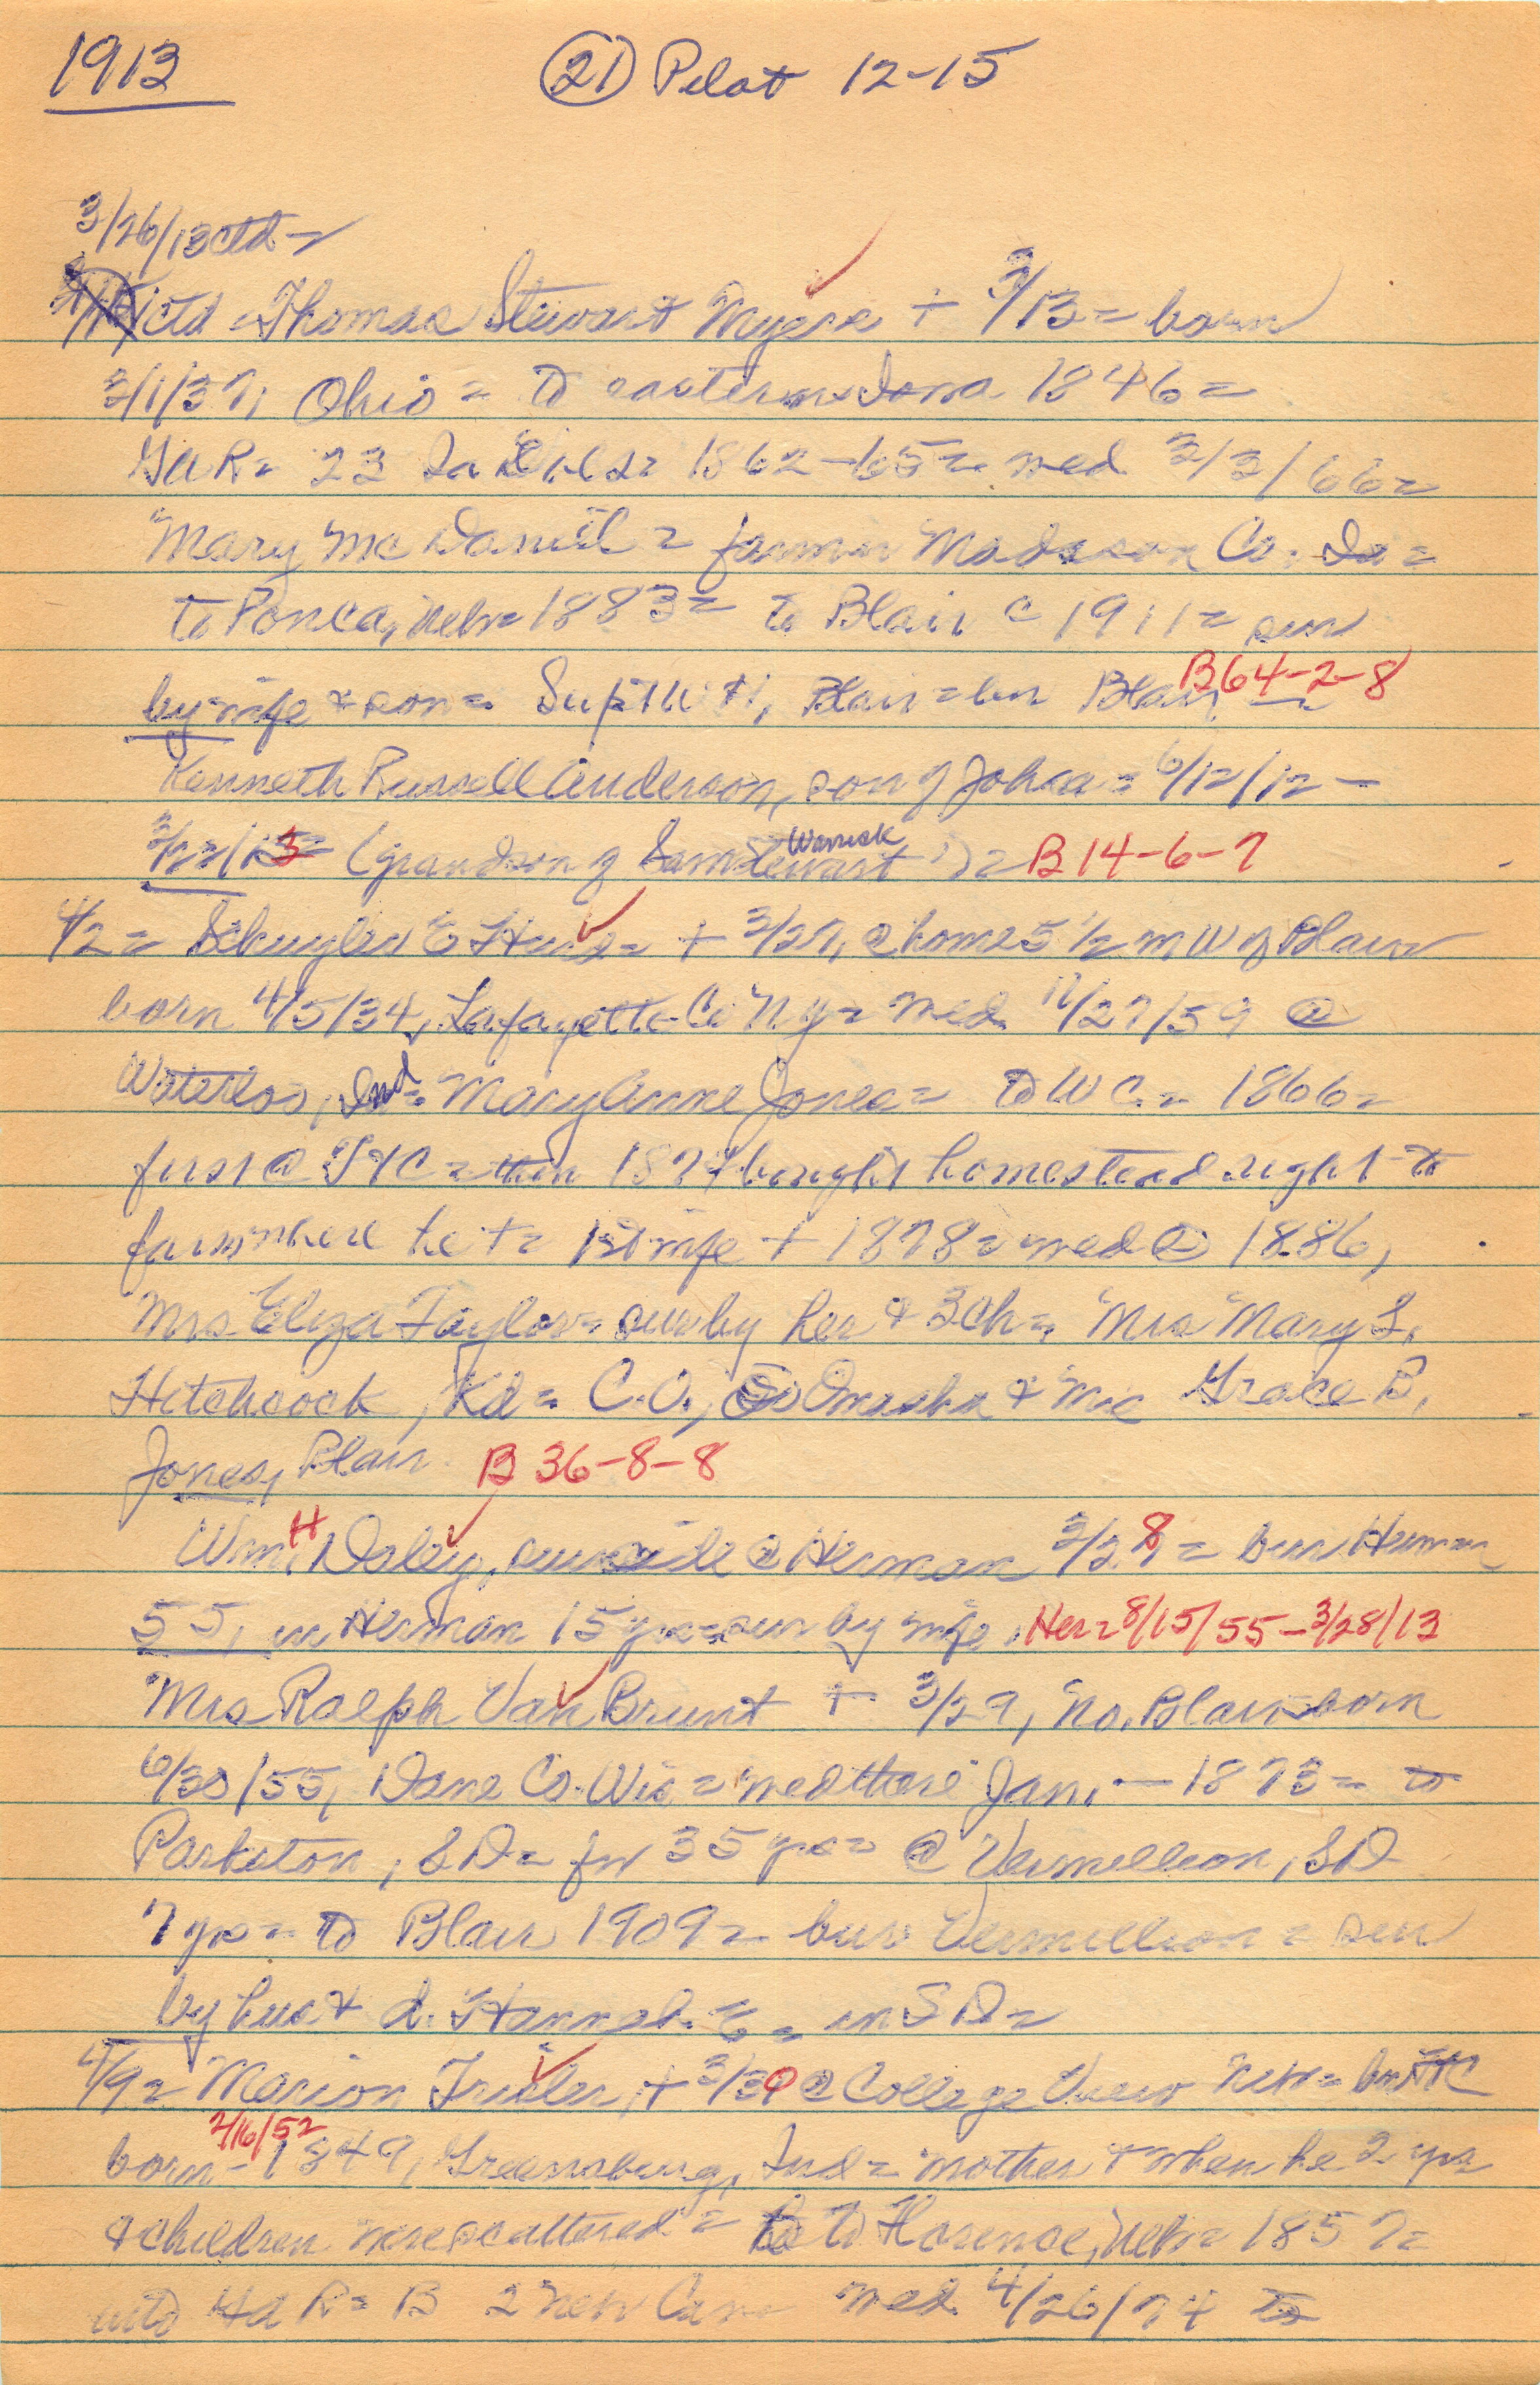 1913 (21) Pilot 12-15
3/26/13 ctd =
ctd = Thomas Stewart Myers + 3/13 = born
3/1/37, Ohio = to eastern Iowa 1846 =
GAR = 23 Ia 1862-65 = med 3/3/66 =
Mary McDaniel = farmer Madison Co. Ia =
to Ponca, Nebr = 1883 = to Blair c 1911 = sur
by wife & son = Supt W H, Blair = bur Blair B64-2-8
Kenneth Russell Anderson, son of John = 6/12/12 -
(grandson of Sam Stewart Warrick) = B 14-6-7
4/2 = Schuyler E + 3/27, @ home 5 1/2 m W of Blair
born 4/5/34, Lafayette Co N Y = med 11/27/59 @
Waterloo, Ind = Mary Anne Jones = to W C = 1866 =
first @ = then bought homestead right to
farm where he + = 1st wife + 1878 = med (2) 1886,
Mrs Eliza Taylor = sur by her & 3 ch = Mrs Mary L.
Hitchcock, Kd = C.O., So Omaha & Mrs Grace B.
Jones, Blair B 36-8-8
Wm. H Daley, suicide @ Herman 3/28 = bur Herman
55, in Herman 15 yrs = sur by wife. Her = 8/15/55 - 3/28/13
Mrs Ralph Van Brunt + 3/29, No. Blair = born
6/30/55, Dane Co. Wis = med there Jan. - 1873 = to
Parkston, SD = for 35 yrs = @ Vermillion, SD
7 yrs = to Blair 1909 = bur Vermillion = sur
by hus & d. Hannah E = in SD =
4/9 = Marion + 3/30 @ College View Nebr = bur
born - 2/16/52 1849, Greensburg, Ind = mother + when he 2 yrs
& children were scattered = to Florence, Nebr = 1857 =
B 2 Neb Cav = med 4/26/74 to